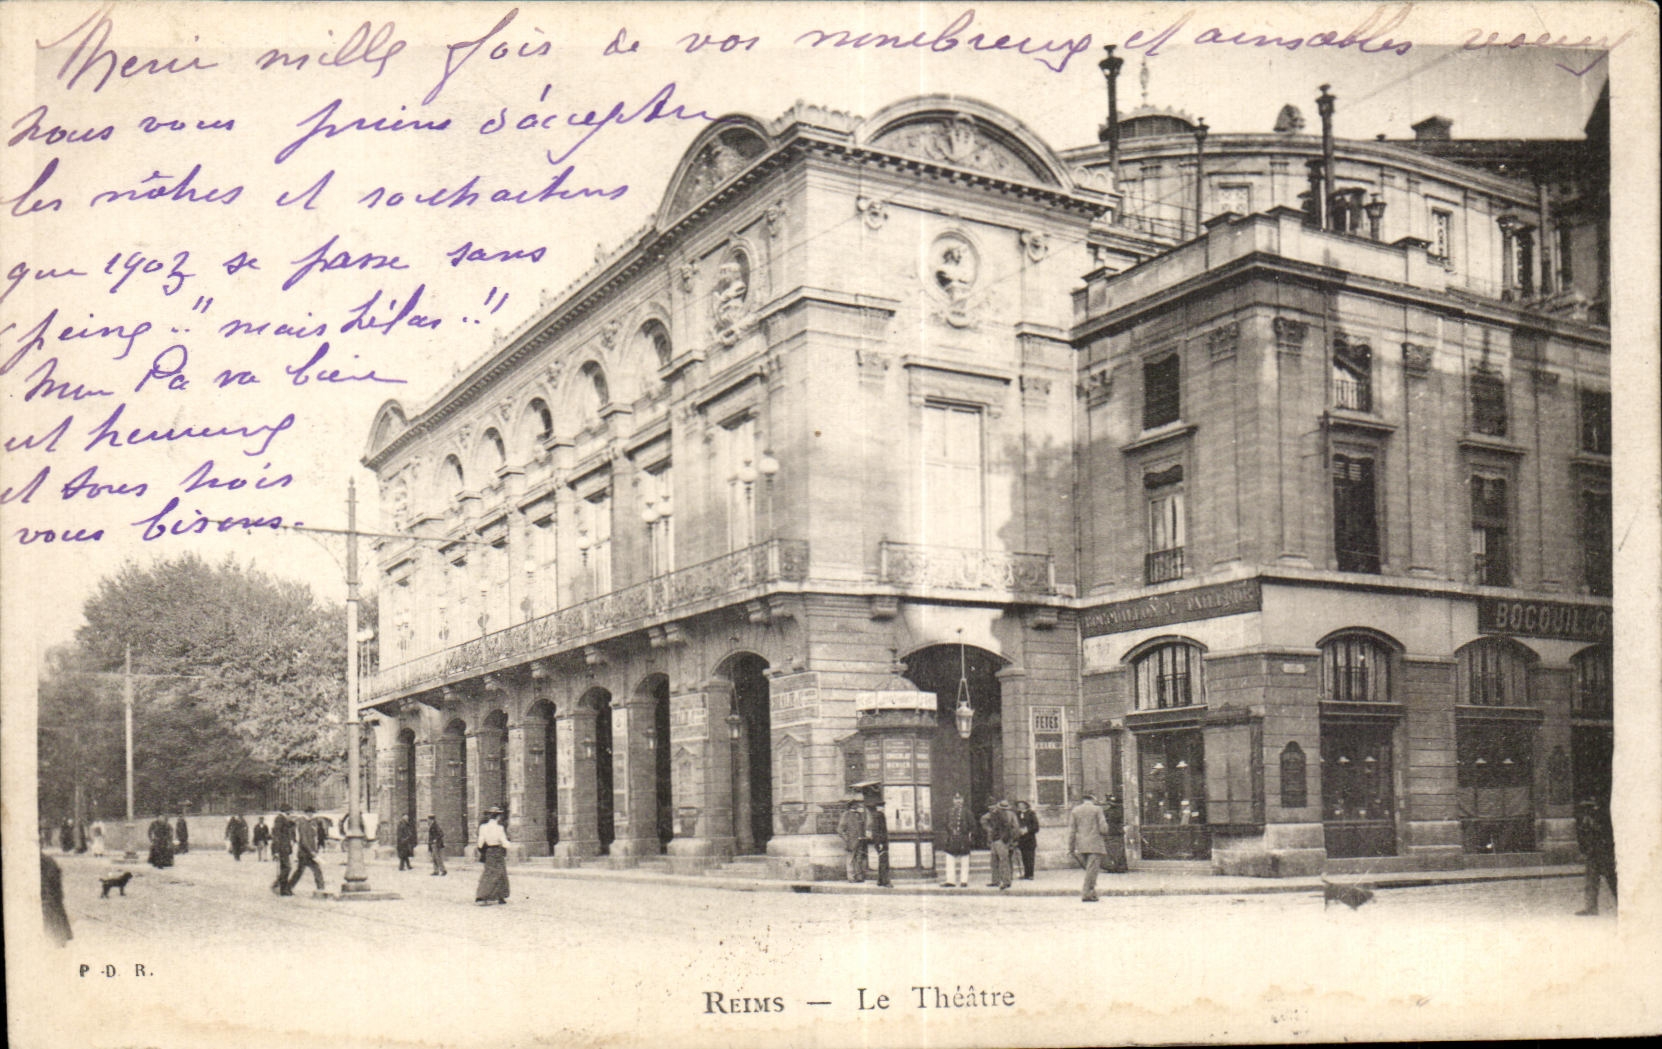 Merci mille fois de vos nombreux et aimables voeux
nous vous prions d'accepter
les nôtres et souhaitons
que 1903 se passe sans
peine !! mais hélas !!
Mon Pa va bien
est heureux
et tous trois
vous bisons.
BOCQUILLON Md TAILLEUR
BOCQUILLO
FETES
P. D. R.
REIMS — Le Théâtre